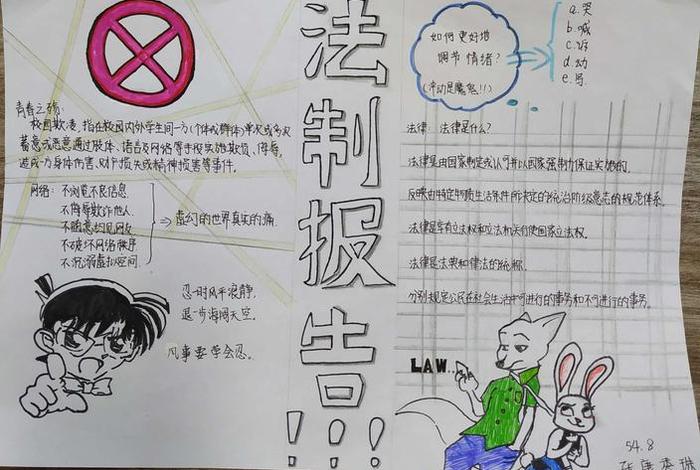 青春之殇：
校园欺凌，指在校园内外学生间一方（个体或群体）单次或多次
蓄意或恶意通过肢体、语言及网络等手段实施欺负、侮辱，
造成另一方身体伤害、财产损失或精神损害等事件。
网络：不浏览不良信息.
不侮辱欺诈他人.
不随意约见网友
不破坏网络秩序
不沉溺虚拟空间.
⇒虚幻的世界真实的痛.
忍一时风平浪静,
退一步海阔天空.
凡事要学会忍.
法制报告!!!
如何更好地
调节情绪?
(冲动是魔鬼!!)
a.哭
b.喊
c.诉
d.动
e.写
法律: 法律是什么?
法律是由国家制定或认可并以国家强制力保证实施的,
反映由特定物质生活条件所决定的统治阶级意志的规范体系.
法律是享有立法权和立法机关行使国家立法权.
法律是法典和律法的统称.
分别规定公民在社会生活中可进行的事务和不可进行的事务。
LAW...
54.8